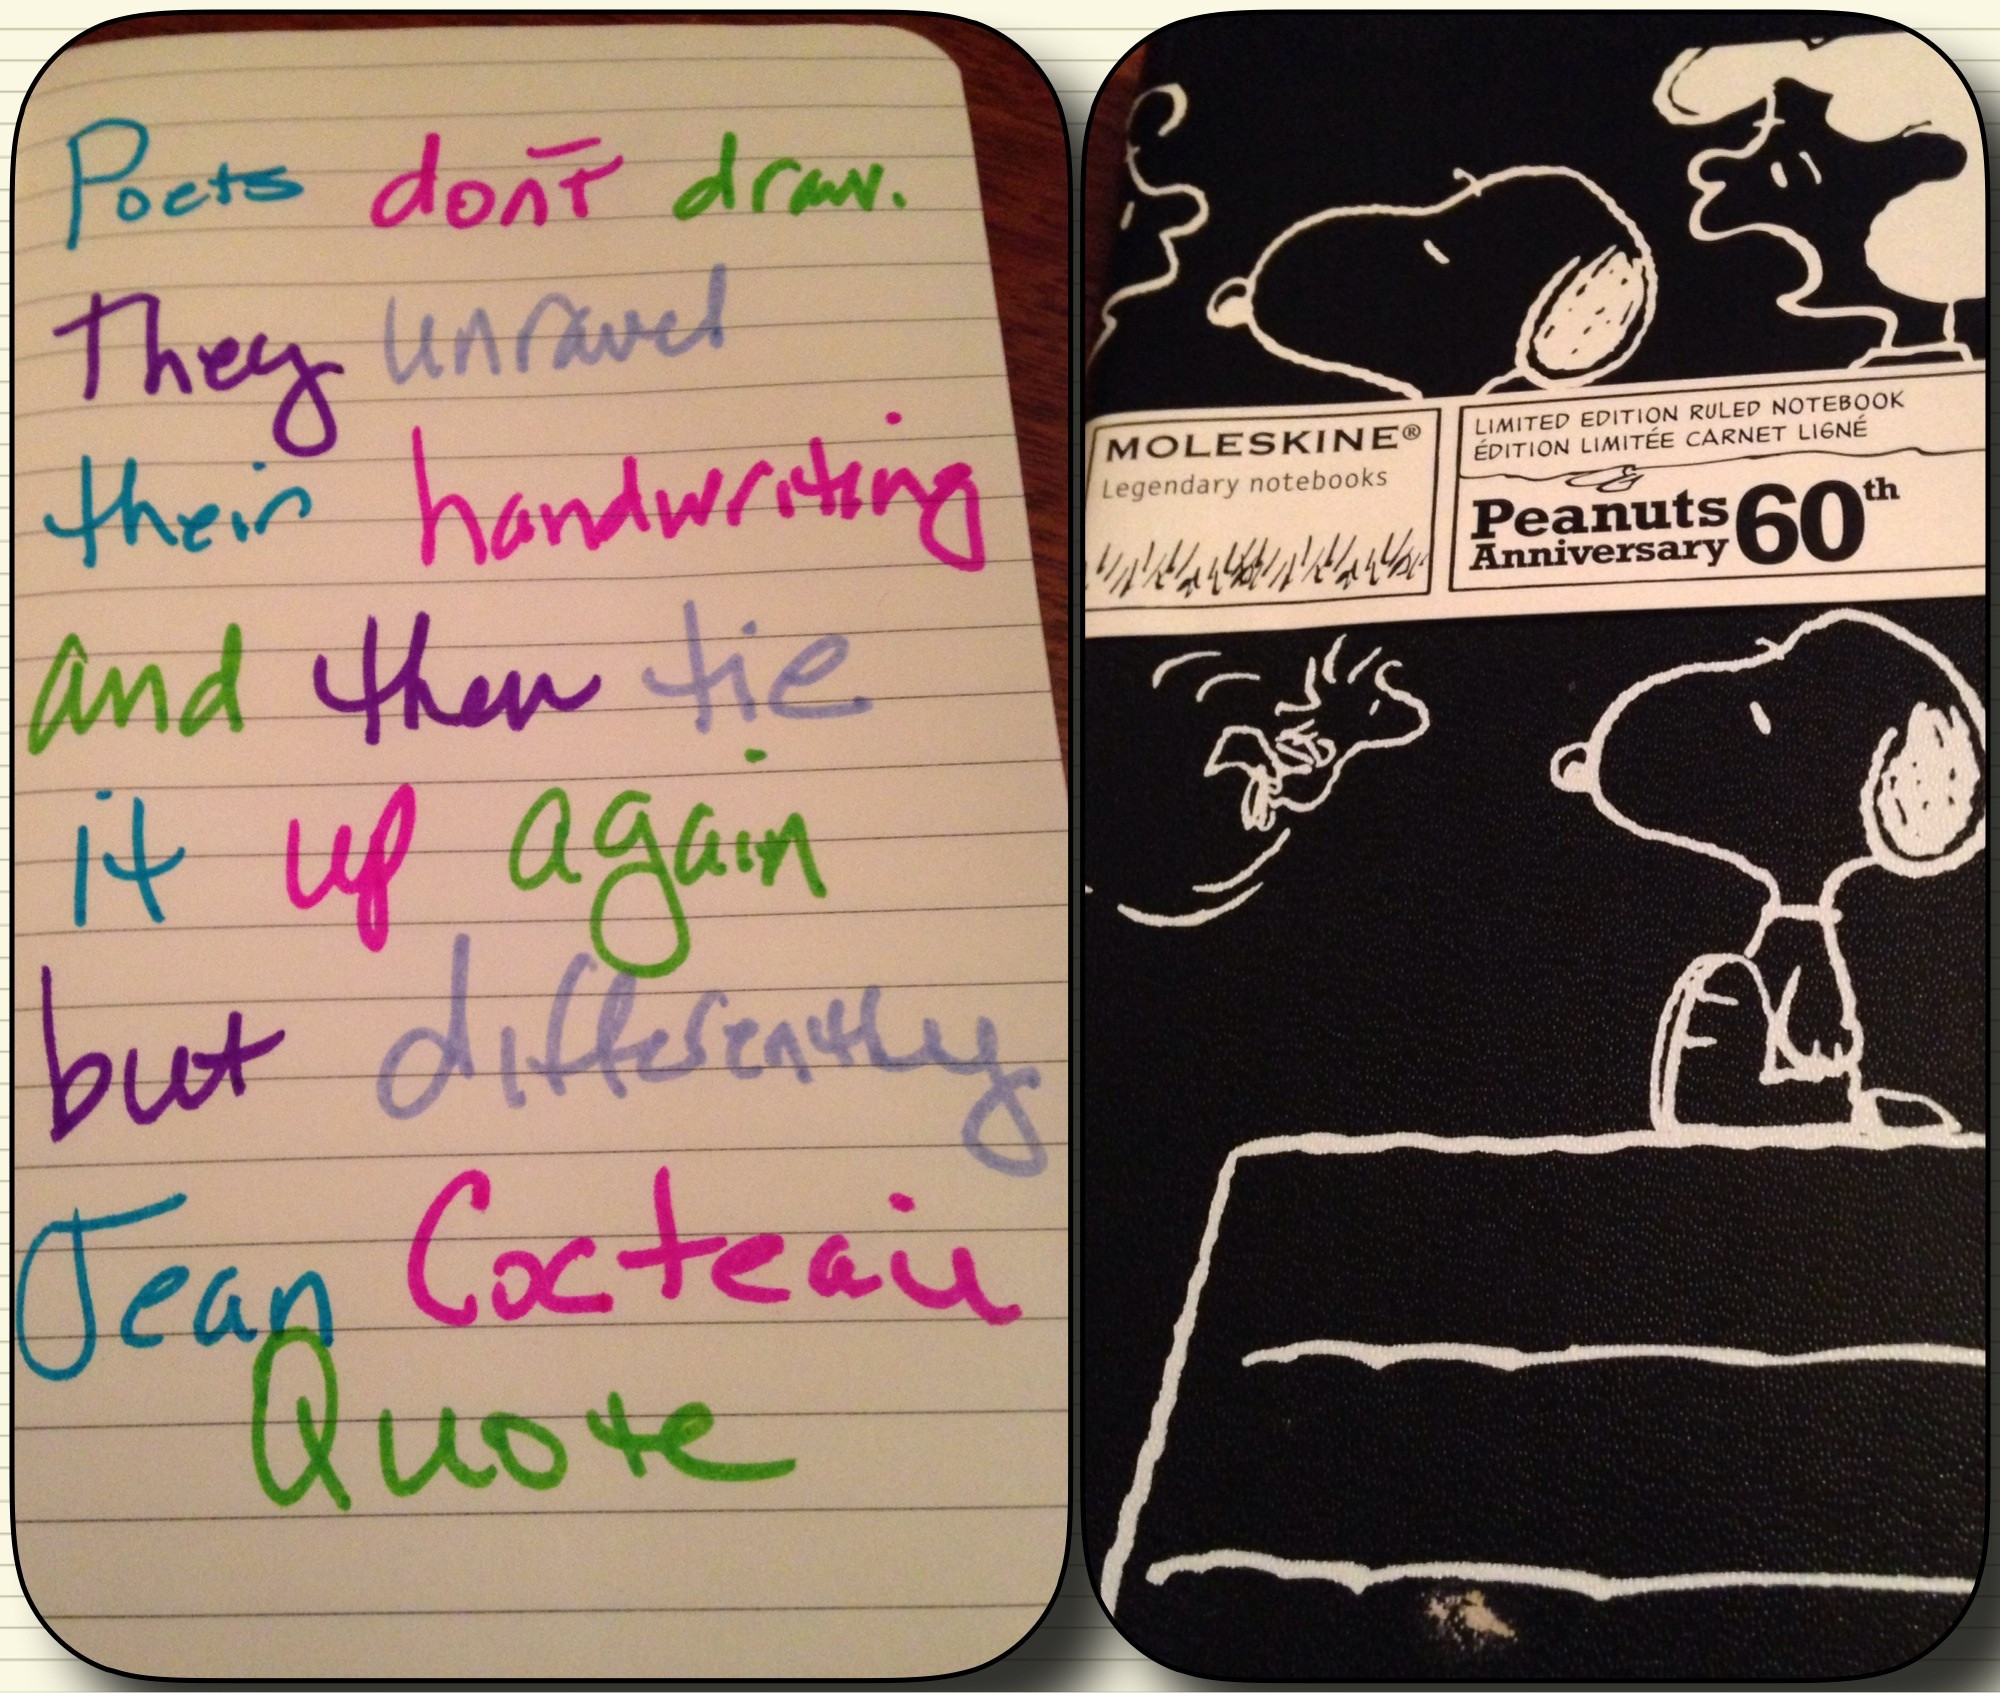 Poets don't draw.
They unravel
their handwriting
and then tie
it up again
but differently
Jean Cocteau
Quote
MOLESKINE®
Legendary notebooks
LIMITED EDITION RULED NOTEBOOK
ÉDITION LIMITÉE CARNET LIGNÉ
Peanuts
Anniversary 60th